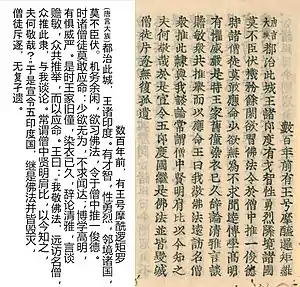 數百年前有王號摩醯邏矩羅
唐言大族都治此城王諸印度有才智性勇烈隣境諸國
莫不臣伏機務餘閑欲習佛法令於僧中推一俊德
時諸僧徒莫敢應命少欲無為不求聞達博學高明
有懼威嚴是時王家舊僮染衣已久辭論清雅言談
贍敏眾共推舉而以應命王曰我敬佛法遠訪名僧
眾推此隸與我談論常謂僧中賢明肩比以今知之
夫何敬哉於是宣令五印度國繼是佛法並皆毀滅
僧徒斥逐無復孑遺
数百年前,有王号摩醯逻矩罗
[唐言大族]都治此城,王诸印度。有才智,性勇烈,邻境诸国,
莫不臣伏。机务余闲,欲习佛法,令于僧中推一俊德。
时诸僧徒莫敢应命:少欲无为,不求闻达;博学高明,
有惧威严。是时王家旧僮,染衣已久,辞论清雅,言谈
赡敏,众共推举,而以应命。王曰:我敬佛法,远访名僧,
众推此隶,与我谈论。常谓僧中贤明肩比,以今知之,
夫何敬哉?于是宣令五印度国,继是佛法并皆毁灭,
僧徒斥逐,无复孑遗。